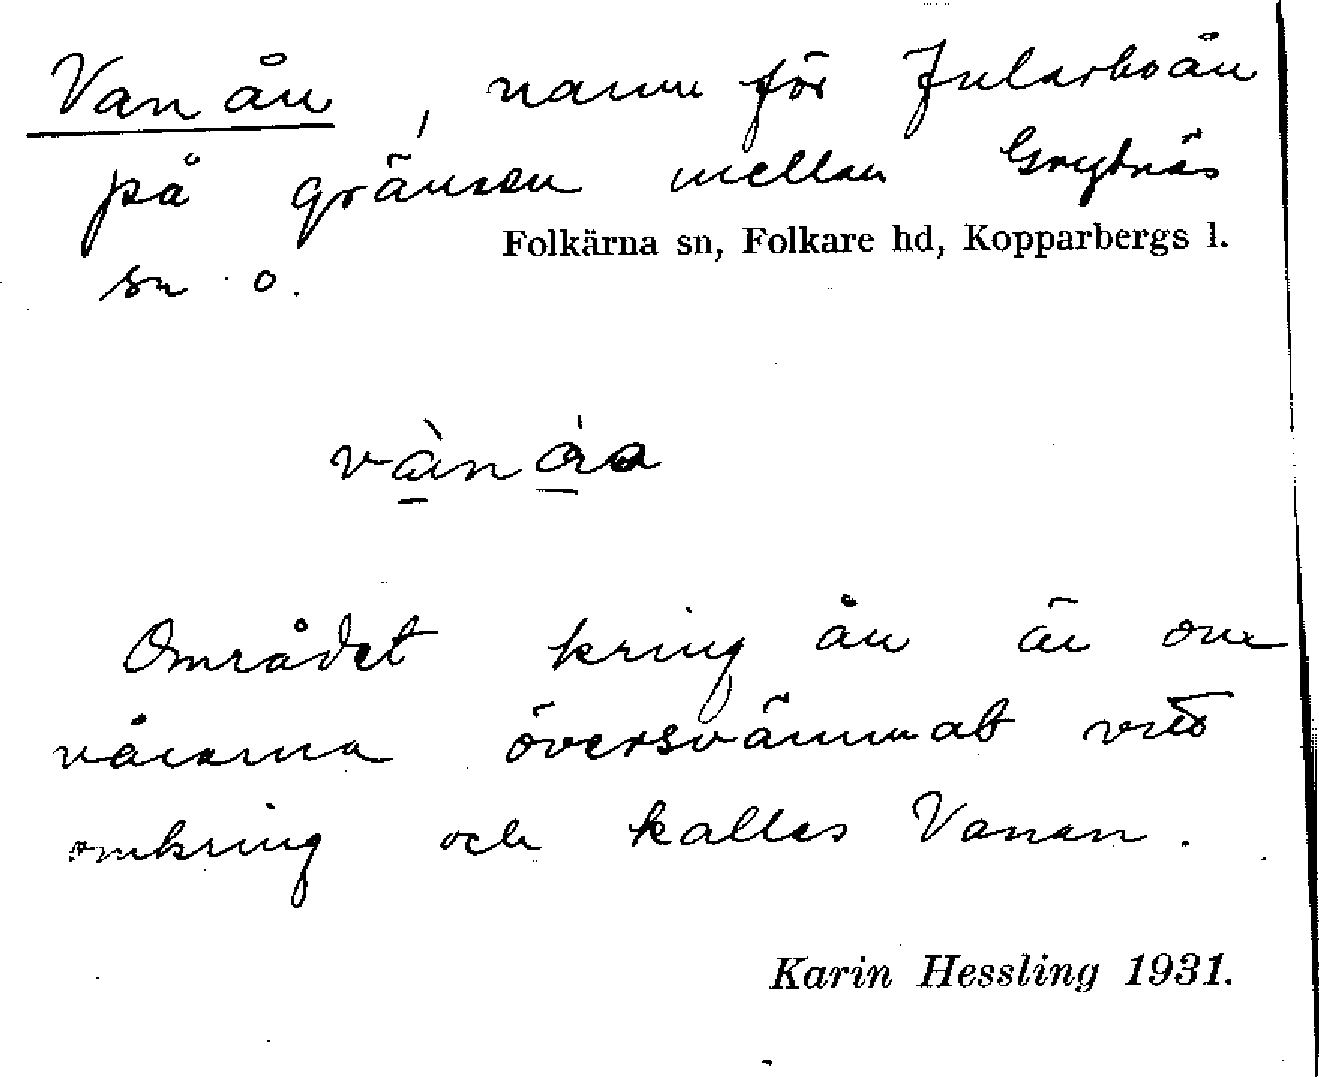 Vanån, namn för Jularboån
på gränsen mellan Grytnäs
Folkärna sn, Folkare hd, Kopparbergs l.
sn o.
Området kring ån är om
vårarna översvämmat vitt
omkring och kallas Vanan.
Karin Hessling 1931.